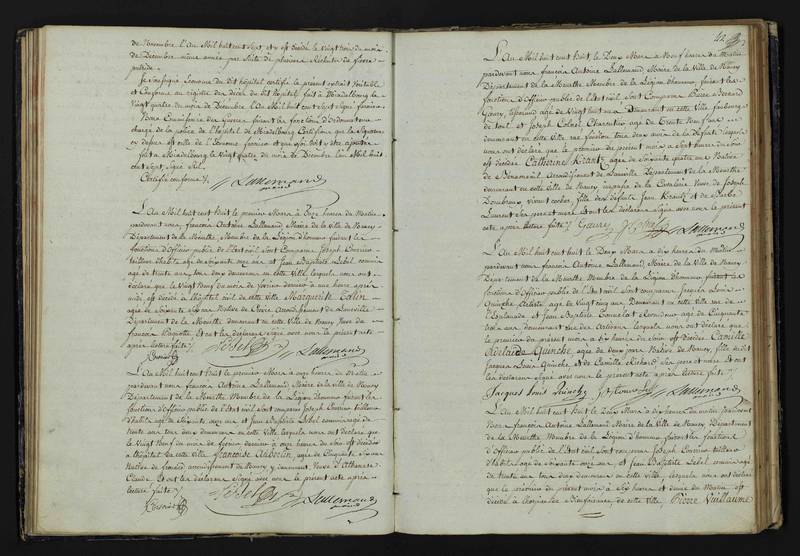 de Novembre l'An Mil huit cent Sept, et y est décédé le Vingt trois du mois
de Décembre même année par Suite de plusieurs
Je soussigné Econome du dit hôpital certifie le présent extrait Véritable
et Conforme au registre des décès du dit hôpital, fait à Magdebourg le
Vingt quatre du mois de Décembre l'An Mil huit cent Sept Signé
Nous Commissaire des guerres faisant les fonctions
chargé de la police de l'hôpital de Magdebourg Certifions que la Signature
ci dessus est celle de l'Econome et que foi doit y être ajoutée
fait à Magdebourg le Vingt quatre du mois de Décembre l'an Mil huit
cent Sept, Signé
Certifié conforme Lallemand
L'An Mil huit cent huit le premier Mars à Onze heures du Matin
pardevant nous françois Antoine Lallemand Maire de la Ville de Nancy
Département de la Meurthe, Membre de la Légion d'honneur faisant les
fonctions d'Officier public de l'État civil Sont Comparus Joseph
tailleur d'habits âgé de Soixante onze ans et Jean Baptiste Lebel commis
âgé de trente ans tous deux demeurans en cette Ville lesquels nous ont
déclaré que le Vingt Neuf du mois de février dernier à une heure après
midi, est décédée à l'hôpital civil de cette ville Marguerite Colin
âgée de Soixante ans Native de Arrondissement de Lunéville
Département de la Meurthe demeurant en cette Ville de Nancy Veuve de
françois Et ont les déclarans Signé avec nous le présent acte
après lecture faite Lebel Lallemand
L'An Mil huit cent huit le premier Mars à onze heures du Matin
pardevant nous françois Antoine Lallemand Maire de la ville de Nancy
Département de la Meurthe Membre de la Légion d'honneur faisant les
fonctions d'Officier public de l'État civil sont comparus Joseph tailleur
d'habits âgé de Soixante onze ans et Jean Baptiste Lebel commis âgé
de trente ans tous deux demeurans en cette Ville lesquels nous ont déclaré que
le Vingt Neuf du mois de février dernier à onze heures du Soir est décédée
à l'hôpital de cette ville, françoise Auberlin, âgée de Cinquante
Native de arrondissement de Nancy, y demeurant, Veuve d'Athanase
Claude. Et ont les déclarans Signé avec nous le présent acte après
lecture faite Lebel Lallemand
42
L'An Mil huit cent huit, le Deux Mars à Neuf heures du Matin
pardevant nous françois Antoine Lallemand Maire de la Ville de Nancy
Département de la Meurthe Membre de la Légion d'honneur, faisant les
fonctions d'Officier public de l'État civil Sont Comparus Pierre Bernard
Gaury, âgé de Vingt huit ans Demeurant en cette Ville faubourg
de toul et Joseph Colnet Charpentier âgé de Trente Neuf ans
demeurant en cette Ville lesquels
nous ont déclaré que le premier du présent mois à Sept heures du Soir
est décédée Catherine Krantz, âgée de Soixante quatre ans Native
de Bénaménil Arrondissement de Lunéville Département de la Meurthe
demeurant en cette Ville de Nancy Veuve de Joseph
vivant cocher, fille des défunts Jean Krantz et de Barbe
Laurent Ses père et mère. Et ont les déclarans Signé avec nous le présent
acte, après lecture faite Gaury J Colnet Lallemand
L'An Mil huit cent huit le Deux Mars à dix heures du Matin
pardevant nous françois Antoine Lallemand Maire de la Ville de Nancy
Département de la Meurthe Membre de la Légion d'honneur faisant les
fonctions d'Officier public de l'État civil, sont comparus Jacques Louis
Quinche Artiste âgé de Vingt cinq ans, Demeurant en cette Ville rue de
l'Esplanade et Jean Baptiste âgé de Cinquante
trois ans demeurant rue des Artisans lesquels nous ont déclaré que
le premier du présent mois à dix heures du Soir est décédée Camille
Adelaïde Quinche, âgée de deux jours Native de Nancy, fille du dit
Jacques Louis Quinche, et de Camille Richard Ses père et mère. Et ont
les déclarans Signé avec nous le présent acte après lecture faite
Jacques Louis Quinche Lallemand
L'An Mil huit cent huit le Deux Mars à dix heures du matin pardevant
Nous françois Antoine Lallemand Maire de la Ville de Nancy, Département
de la Meurthe, Membre de la Légion d'honneur, faisant les fonctions
d'Officier public de l'État civil, sont comparus Joseph tailleur
d'habits âgé de Soixante onze ans, et Jean Baptiste Lebel commis âgé
de trente ans tous deux demeurans en cette Ville, lesquels nous ont déclaré
que le premier du présent mois à Six heures et demie du Matin, est
décédé à l'hospice de Bienfaisance, de cette Ville, Pierre Vuillaume